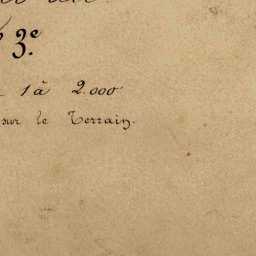 3e.
1 à 2.000
sur le Terrain.